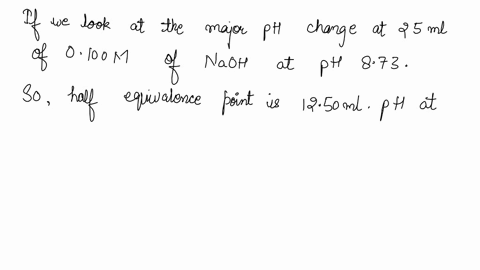 If we look at the major pH change at 25 ml
of 0.100 M of NaOH at pH 8.73.
So, half equivalence point is 12.50 ml. pH at